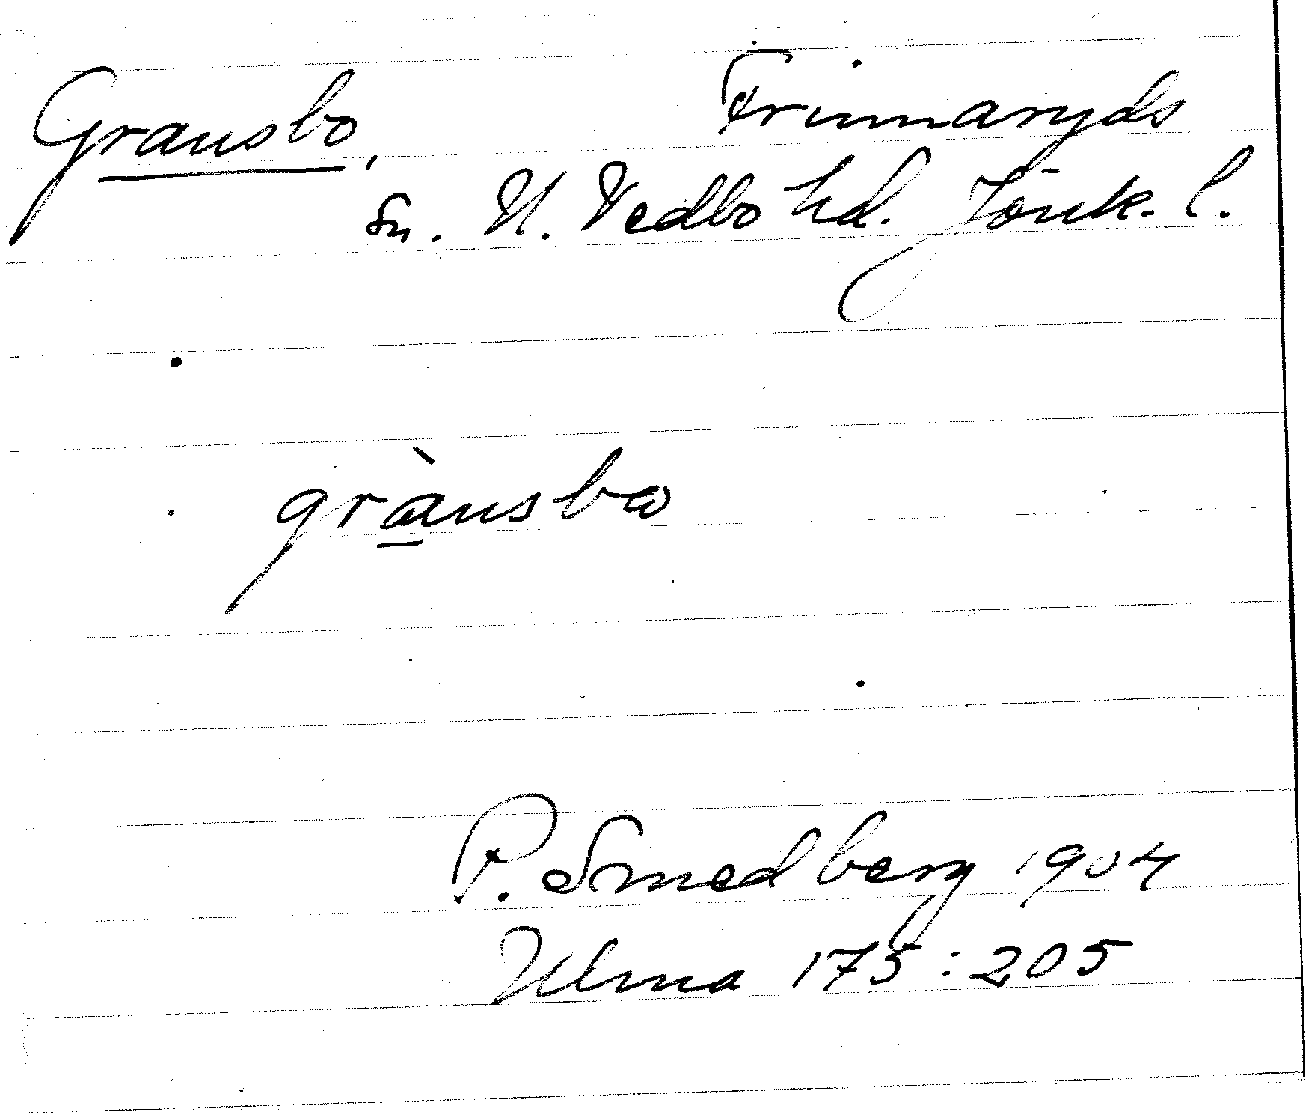 Gransbo, Frinnaryds
sn. N. Vedbo hd. Jönk. l.
grànsbω
P. Smedberg 1904
Ulma 175:205